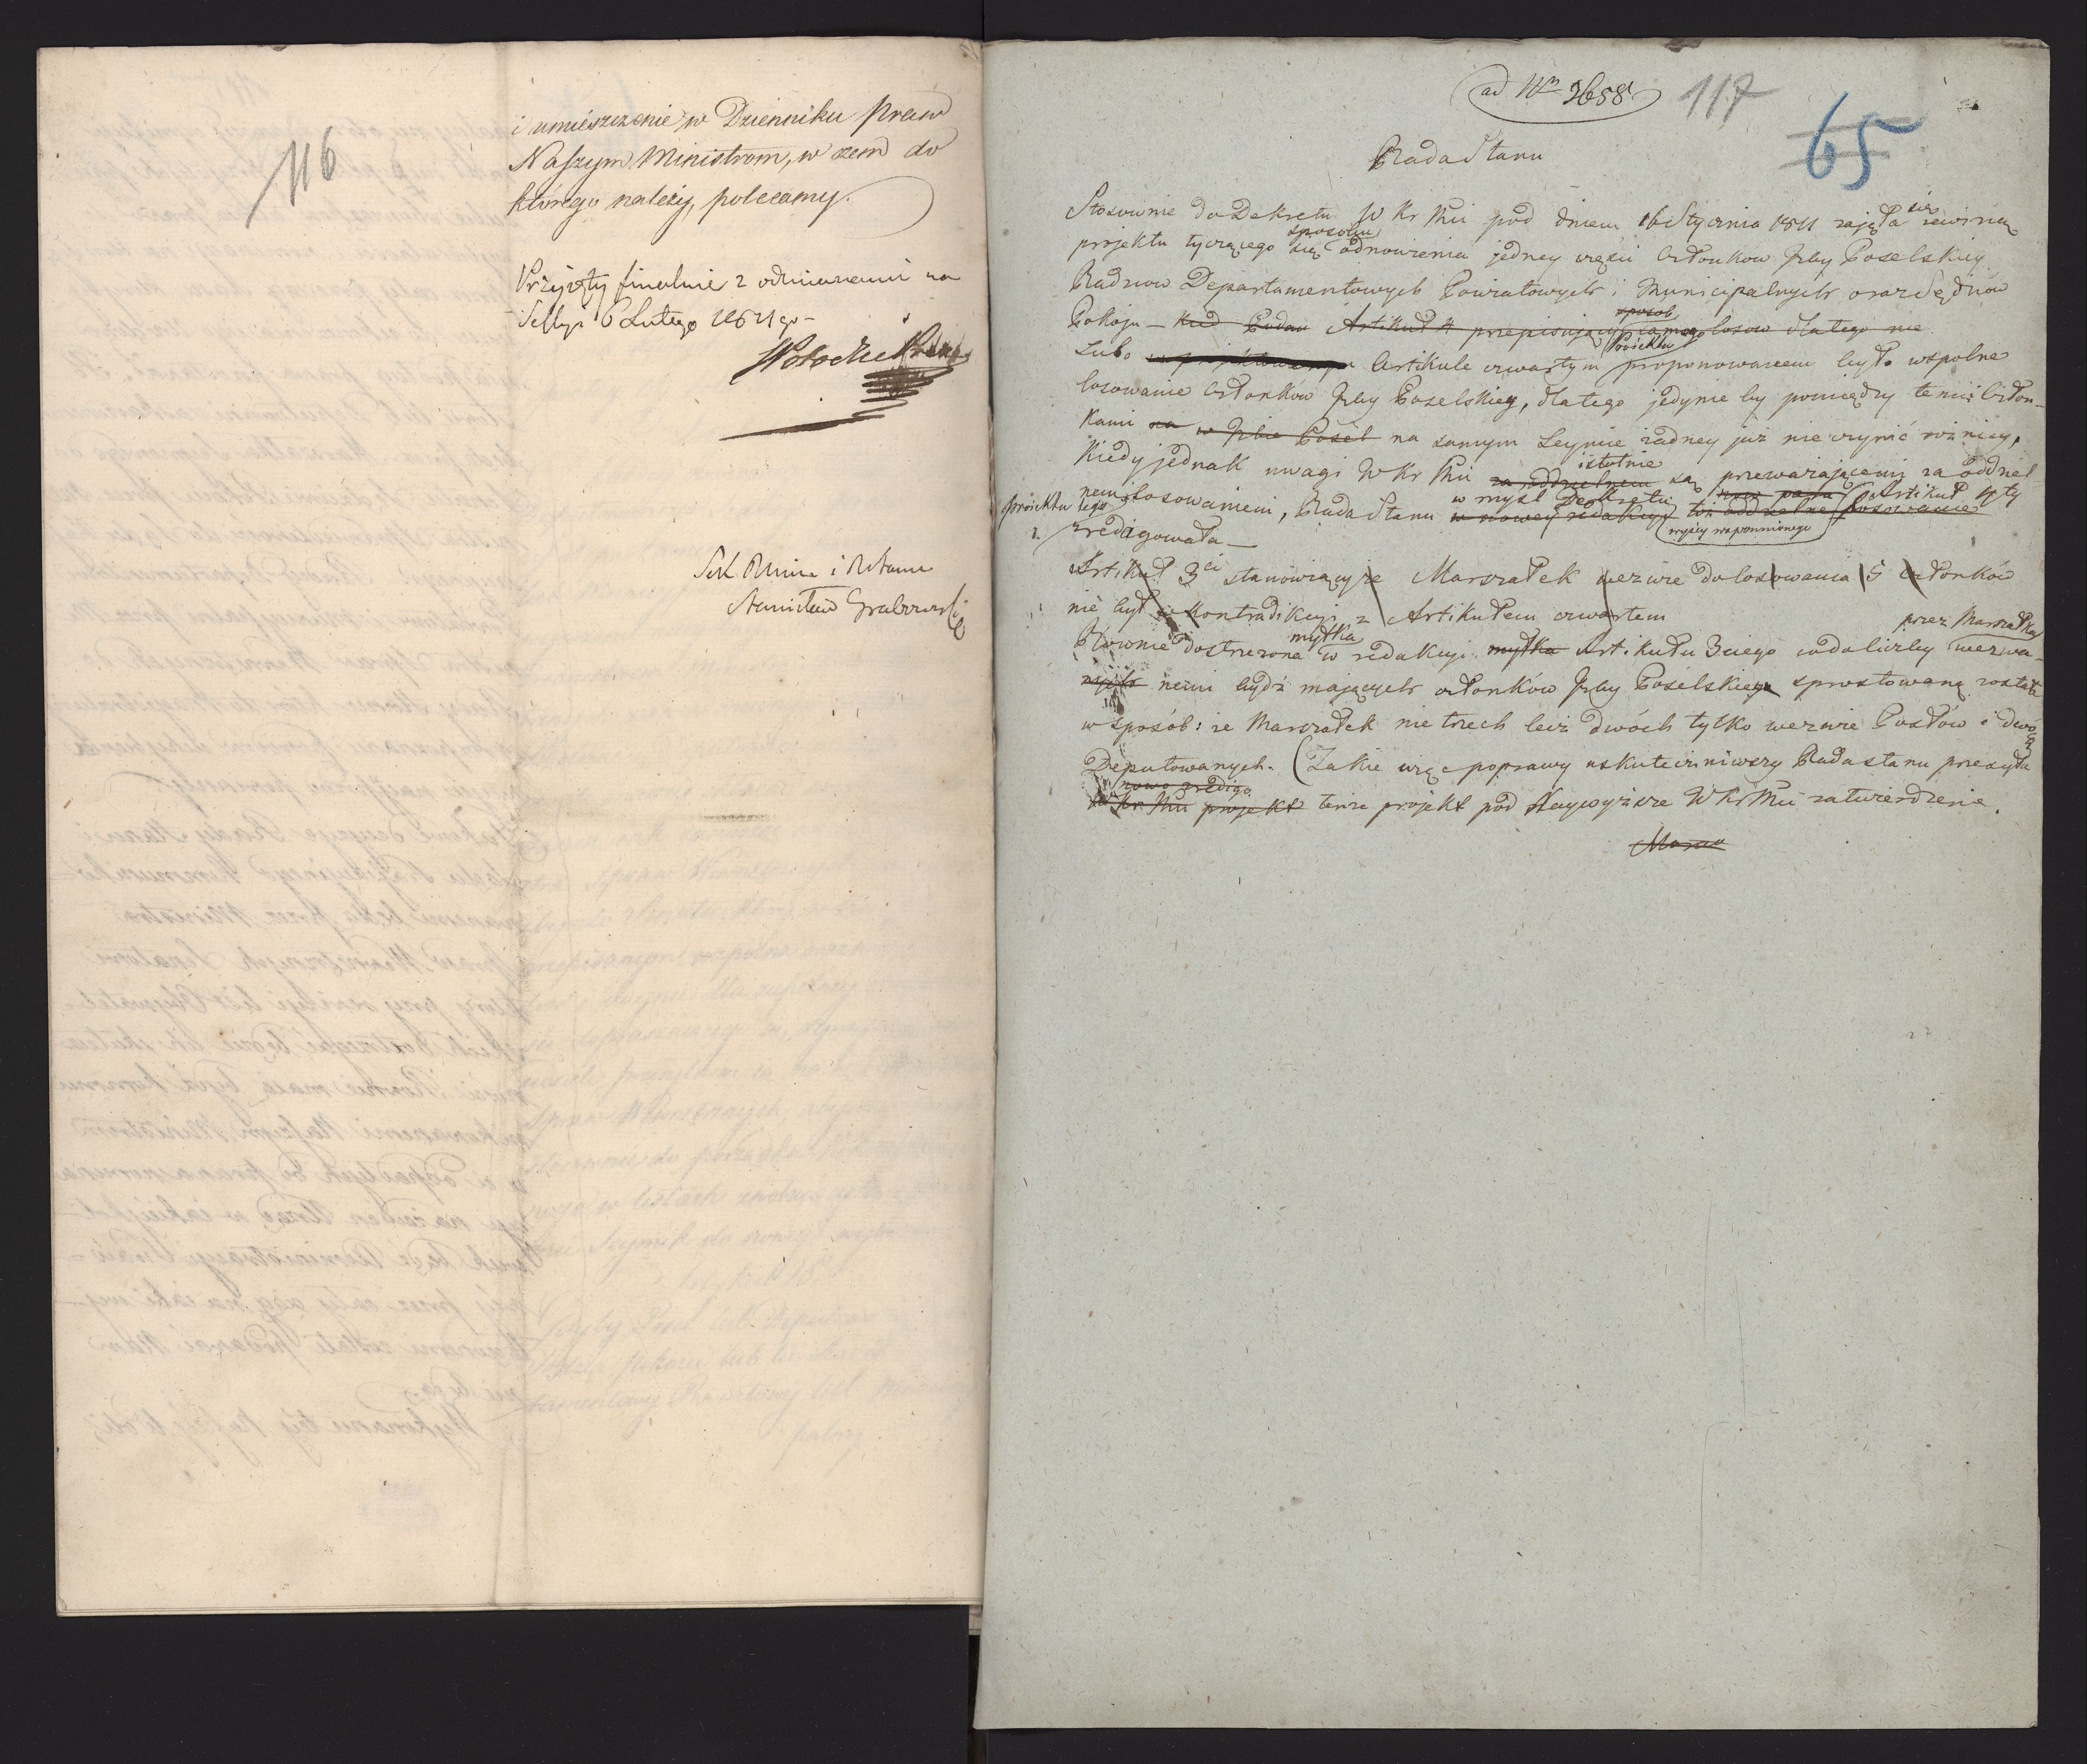 116
i umieszczenie w Dzienniku Praw
Naszym Ministrom, w czem do
którego należy, polecamy.
Przyjęty finalnie z odmianami na
Sessyi 6 Lutego 1811 go
Sek. Rady i Stanu
Stanisław Grabowski
ad Nrm 2658
117
65
Rada Stanu
Stosownie do Dekretu W Kr Mci pod dniem 16 Stycznia 1811 zajęła się rewizią
projektu tyczącego się sposobu odnowienia jedney części Członkow Jzby Poselskiey
Radzcow Departamentowych Powiatowych i Municipalnych oraz Sędziów
Pokoju — Artikuł 4 przepisujący sposób losow dlatego nie
Lubo Artikule czwartym Proiektu proponowanem było wspolne
losowanie Członków Jzby Poselskiey, dlatego jedynie by pomiędzy temiż Człon-
kami na w Jzbie Posel na samym Seymie żadney już nie czynić różnicy,
Kiedy jednak uwagi W Kr Mci za oddzielnem istotnie są przeważającemi za oddziel-
nem losowaniem, Rada Stanu w nowey redakcyi w myśl Dekretu też oddzielne losowanie Artikuł 4ty
proiektu tego
wyżey wspomnionego
zredigowała —
Artikuł 3ci stanowiący że Marszałek wezwie do losowania 5 członków
nie był w kontradikcyi z Artikułem czwartem
Równie dostrzeżona myłka w redakcyi myłka Artikułu 3ciego co do liczby przez Marszałka wezwa-
nych nemi bydź mających członków Jzby Poselskiey sprostowaną została
w sposób: że Marszałek nie trzech lecz dwóch tylko wezwie Posłów i dwóch
Deputowanych. Takie więc poprawy uskuteczniwszy Rada stanu przesyła
nowo zredigo
W Kr Mci projekt tenże projekt pod Naywyższe W Kr Mci zatwierdzenie.